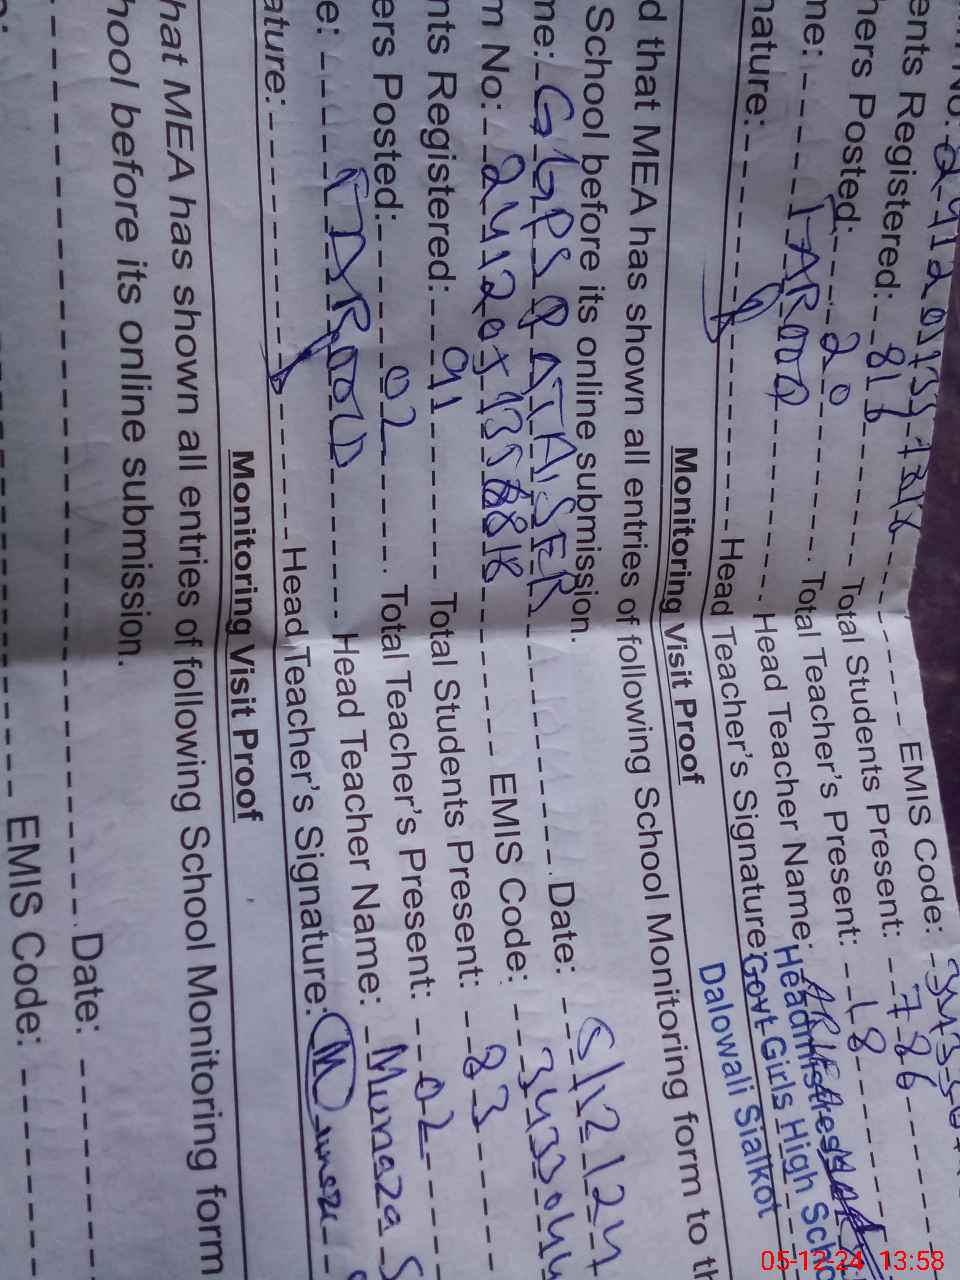 ents Registered: 816 Total Students Present: 786
hers Posted: 20 Total Teacher's Present: 18
me: FAROOQ Head Teacher Name:
nature: Head Teacher's Signature:
Headmistress
Govt Girls High Scho
Dalowali Sialkot
Monitoring Visit Proof
d that MEA has shown all entries of following School Monitoring form to th
School before its online submission.
me: GGPS QAIAISER Date: 5/12/24
m No: EMIS Code:
nts Registered: 91 Total Students Present: 83
ers Posted: 02 Total Teacher's Present: 02
e: FAROOQ Head Teacher Name: Munaza S
ature: Head Teacher's Signature:
Monitoring Visit Proof
hat MEA has shown all entries of following School Monitoring form
hool before its online submission.
Date:
EMIS Code:
05-12-24 13:58